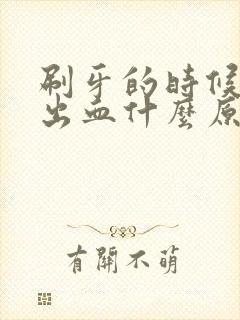 刷牙的時候
出血什麼原
有關不萌